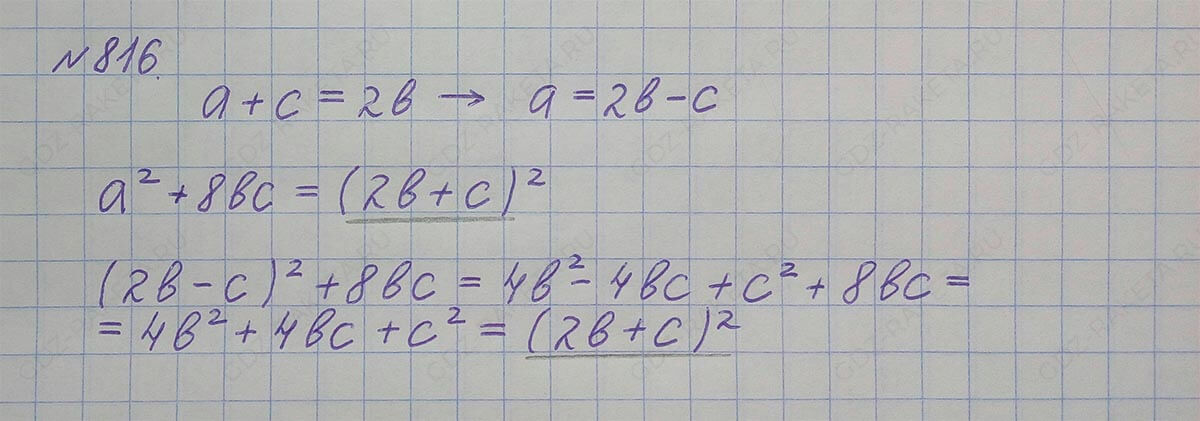 №816.
a + c = 2b → a = 2b - c
a² + 8bc = (2b + c)²
(2b - c)² + 8bc = 4b² - 4bc + c² + 8bc =
= 4b² + 4bc + c² = (2b + c)²
GDZ-RAKETA.RU